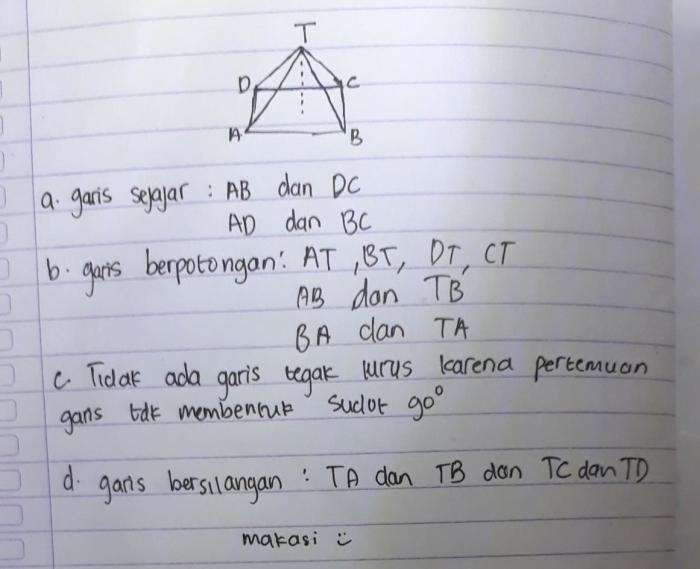 T
D C
A B
a. garis sejajar : AB dan DC
AD dan BC
b. garis berpotongan : AT , BT, DT, CT
AB dan TB
BA dan TA
c. Tidak ada garis tegak lurus karena pertemuan
garis tdk membentuk sudot 90°
d. garis bersilangan : TA dan TB dan TC dan TD
makasi :)